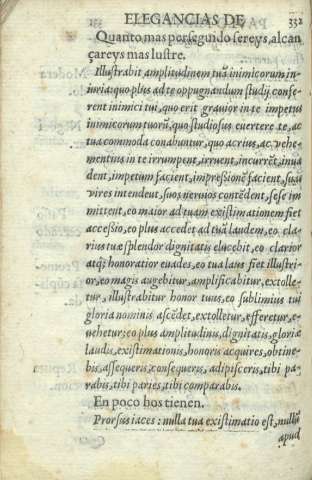 ELEGANCIAS DE 332
Quanto mas perseguido sereys, alcan
çareys mas lustre.
Illustrabit amplitudinem tuã inimicorum in-
iuria: quo plus ad te oppugnandum studij confe-
rent inimici tui, quo erit grauior in te impetus
inimicorum tuorũ, quo studiosius euertere te, ac
tua commoda conabuntur, quo acrius, ac vehe-
mentius in te irrumpent, irruent, incurrẽt, inua
dent, impetum facient, impressionẽ facient, suas
vires intendent, suos neruios contẽdent, sese im
mittent, eo maior ad tuam existimationem fiet
accessio, eo plus accedet ad tua laudem, eo cla-
rius tuæ splendor dignitatis elucebit, eo clarior
atq; honoratior euades, eo tua laus fiet illustri-
or, eo magis augebitur, amplificabitur, extolle-
tur, illustrabitur honor tuus, eo sublimius tui
gloria nominis ascẽdet, extolletur, efferetur, e-
uehetur; eo plus amplitudinis, dignitatis, gloriæ
laudis, existimationis, honoris acquires, obtine-
bis, assequeris, consequeris, adipisceris, tibi pa-
rabis, tibi paries, tibi comparabis.
En poco hos tienen.
Prorsus iaces: nulla tua existimatio est, nullus
apud